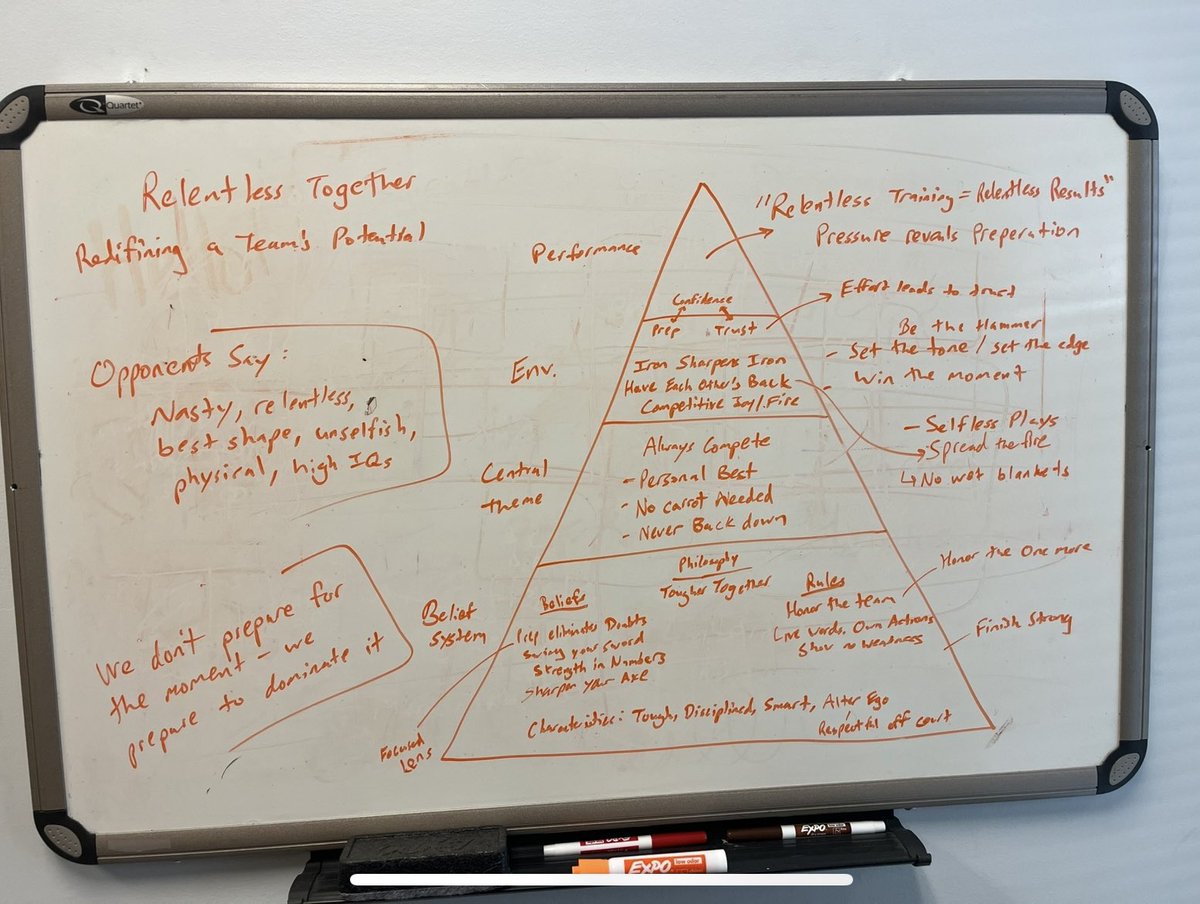 Quartet
Relentless Together
Redifining a Team's Potential
Opponents Say:
Nasty, relentless,
best shape, unselfish,
physical, high IQs
We don't prepare for
the moment - we
prepare to dominate it
Performance
Env.
Central
theme
Belief
System
Focused
Lens
Confidence
Prep Trust
Iron Sharpens Iron
Have Each Other's Back
Competitive Joy/Fire
Always Compete
- Personal Best
- No carrot Needed
- Never Back down
Philosophy
Tougher Together
Beliefs
Prep eliminates Doubts
Swing your sword
Strength in Numbers
Sharpen your Axe
Rules
Honor the team
Live words, Own Actions
Show no weakness
Characteristics: Tough, Disciplined, Smart, Alter Ego
Respectful off court
"Relentless Training = Relentless Results"
Pressure reveals Preparation
Effort leads to trust
Be the Hammer
- Set the tone / set the edge
- Win the moment
- Selfless Plays
Spread the fire
↳ No wet blankets
Honor the One more
Finish Strong
EXPO
EXPO low odor